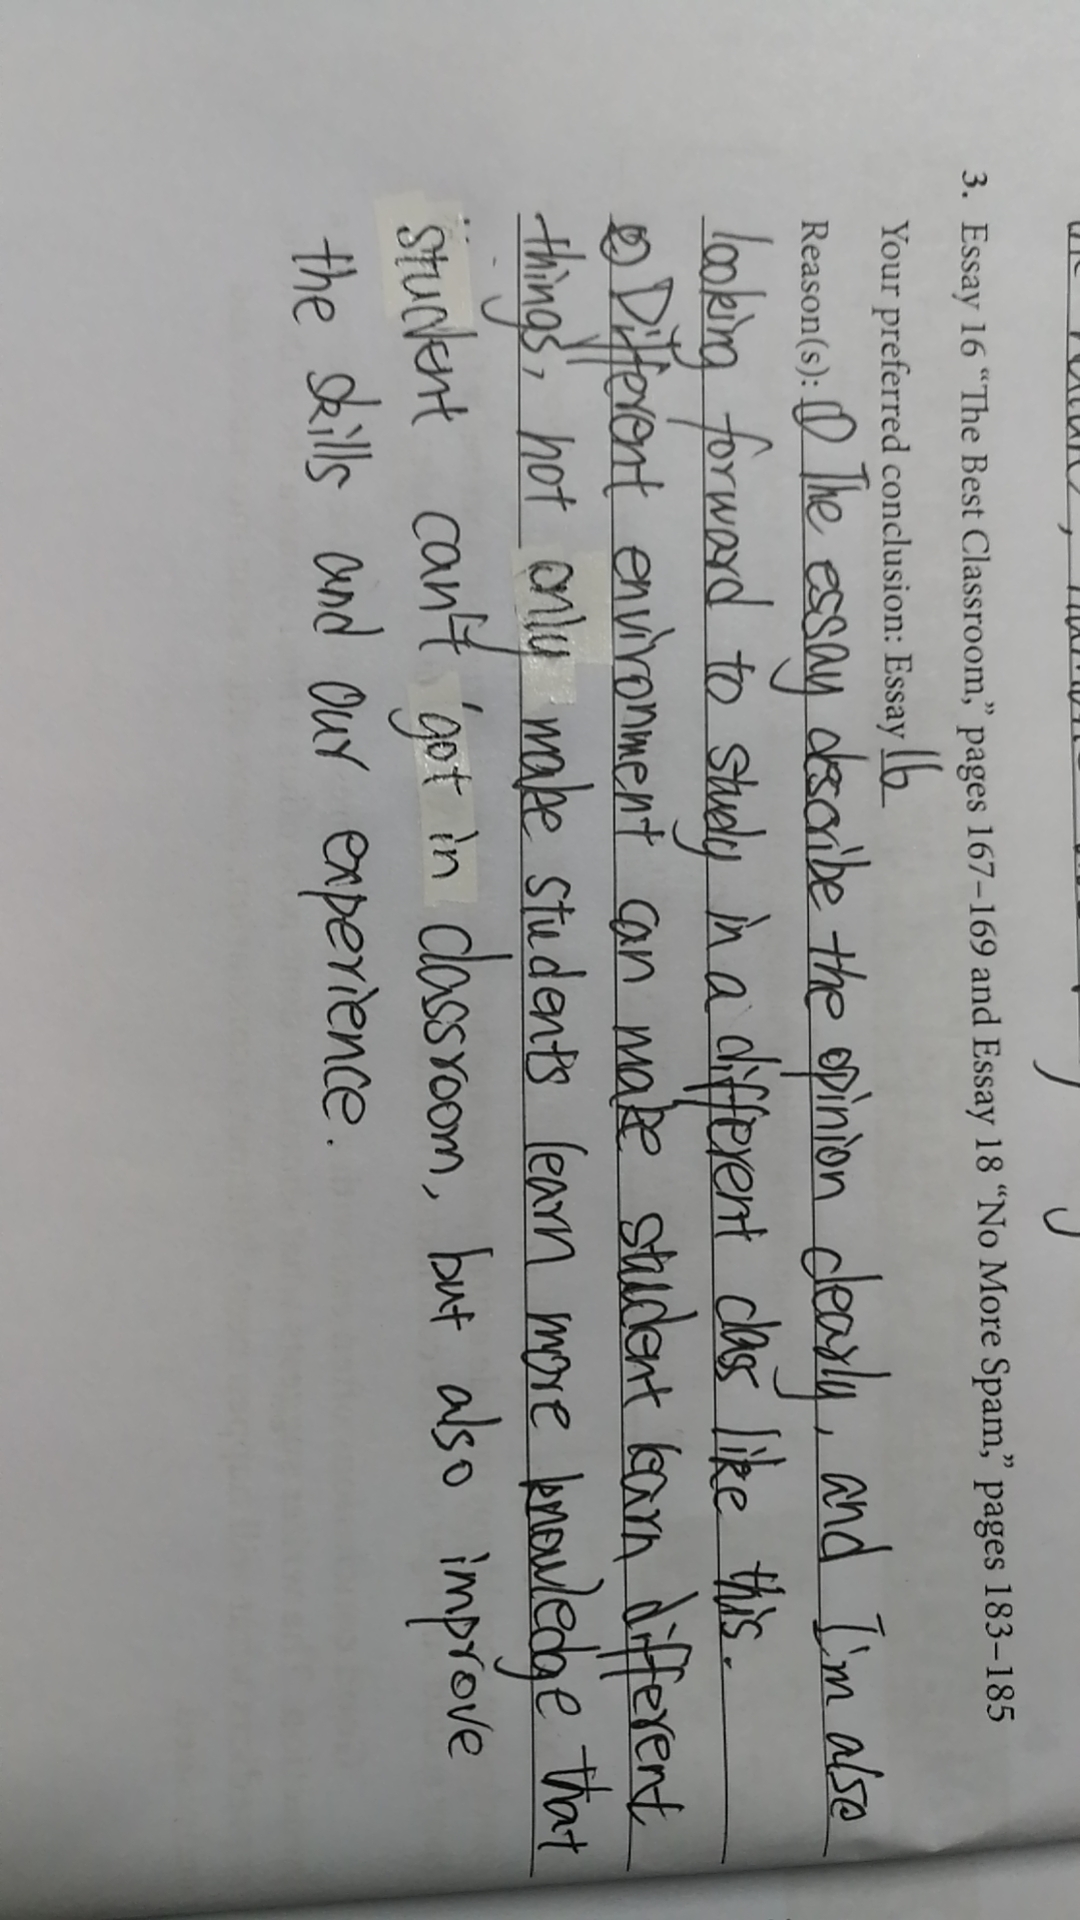 3. Essay 16 “The Best Classroom,” pages 167–169 and Essay 18 “No More Spam,” pages 183–185
Your preferred conclusion: Essay 16
Reason(s): ① The essay describe the opinion clearly, and I'm also
looking forward to study in a different class like this.
② Different environment can make student learn different
things, not only make students learn more knowledge that
student can't got in classroom, but also improve
the skills and our experience.